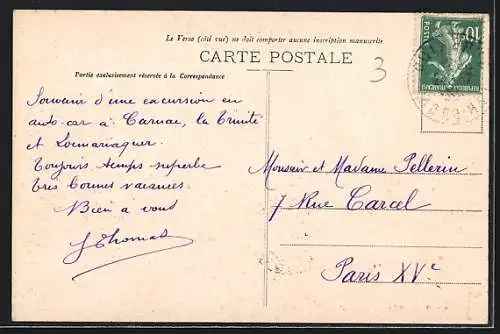 Le Verso (côté vue) ne doit comporter aucune inscription manuscrite
CARTE POSTALE
Partie exclusivement réservée à la Correspondance
3
POSTES
10
RÉPUBLIQUE FRANÇAISE
Souvenir d'une excursion en
auto-car à Carnac, la Trinité
et Locmariaquer.
Toujours temps superbe
très bonnes vacances.
Bien à vous
J Thomas
Monsieur et Madame Pellerin
7 Rue Carcel
Paris XVe